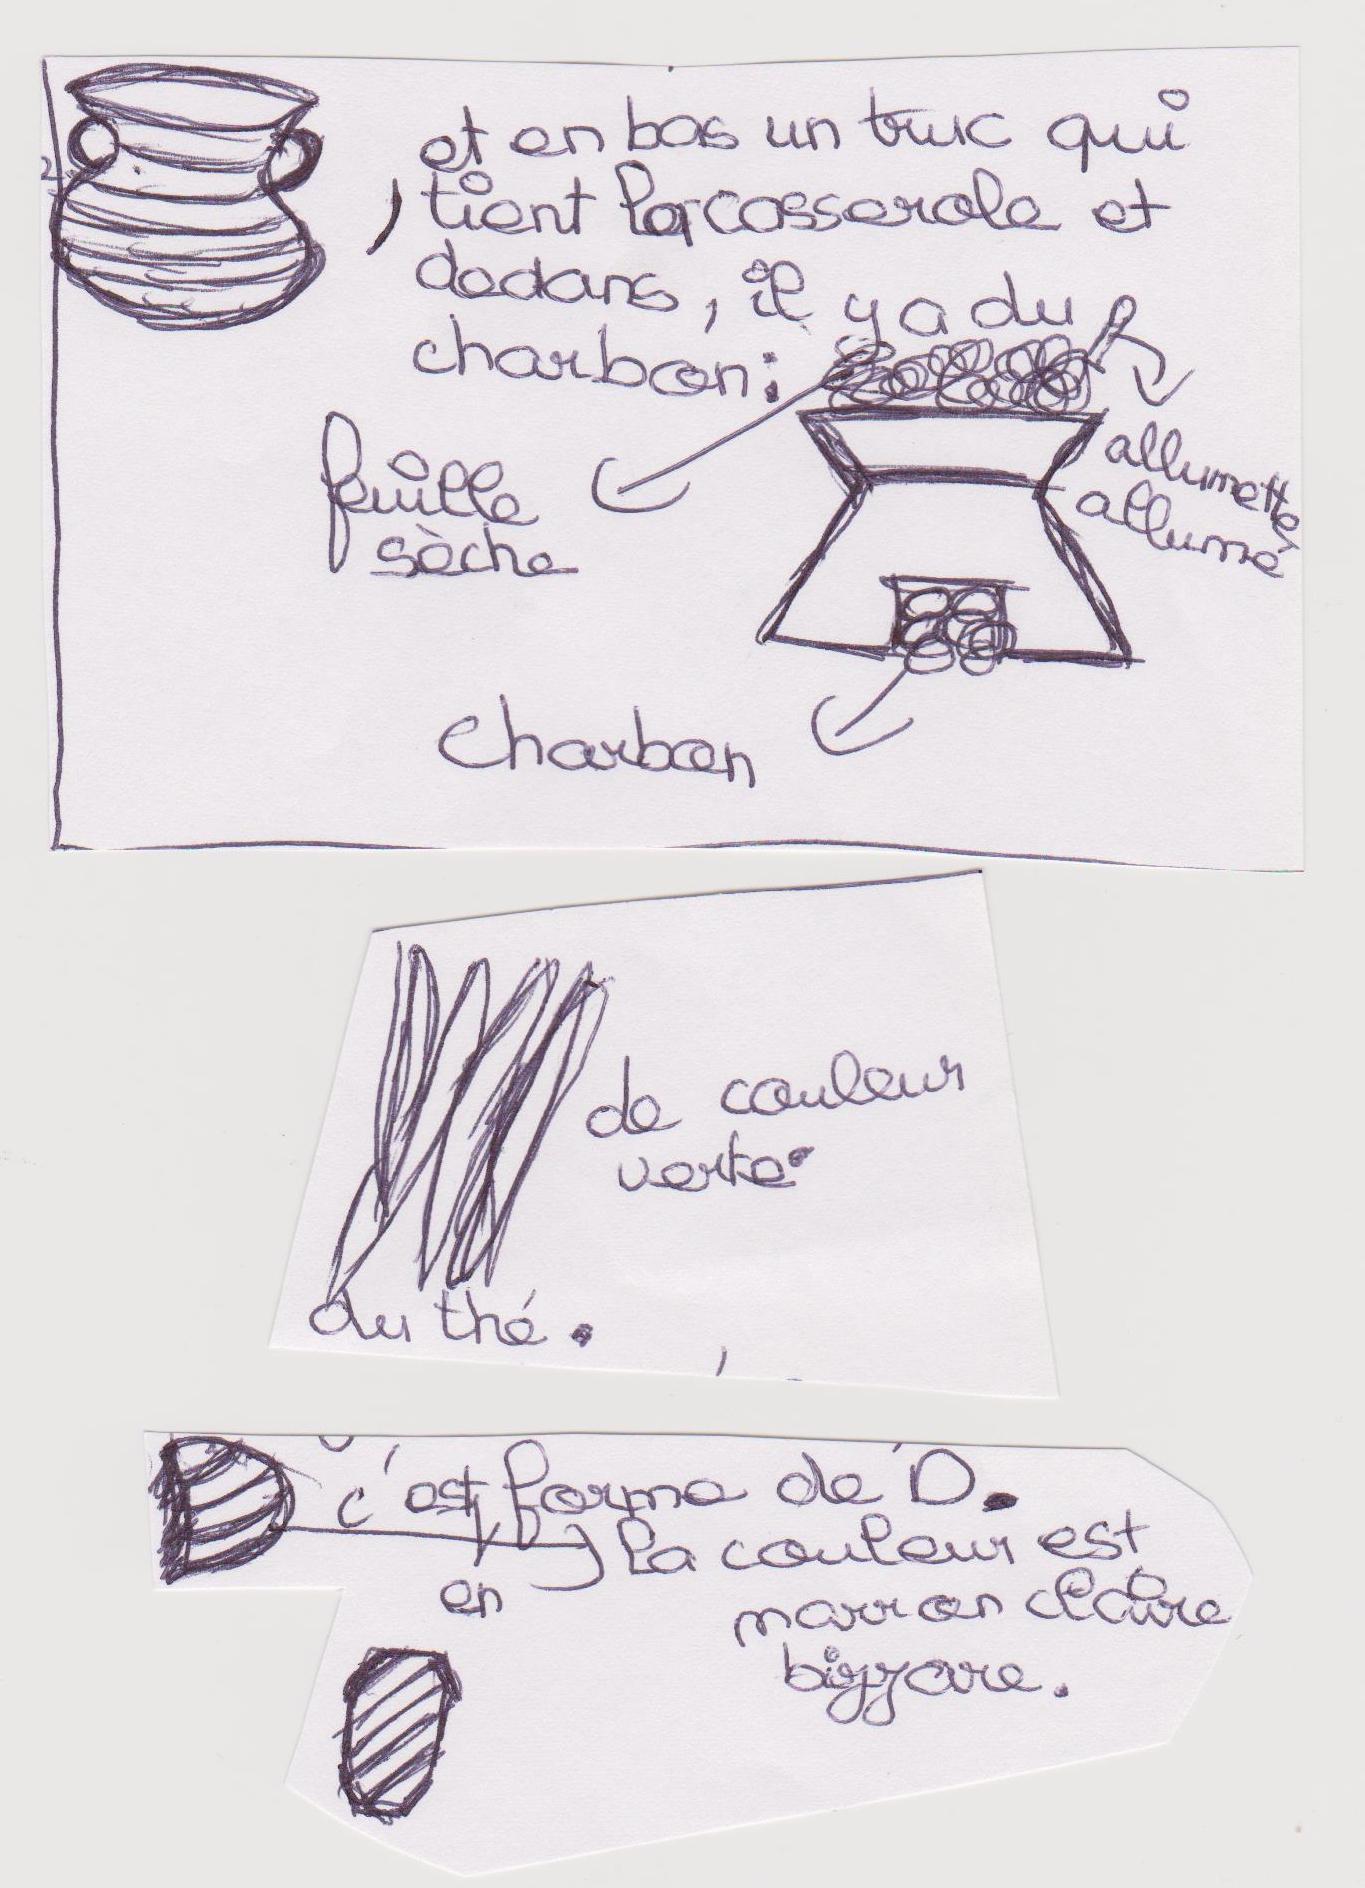 et en bas un truc qui
, tient la casserole et
dedans, il y a du
charbon:
feuille
sèche
allumette
allumé
charbon
de couleur
verte.
du thé.
c'est forme de D.
en
la couleur est
marron claire
bizzare.